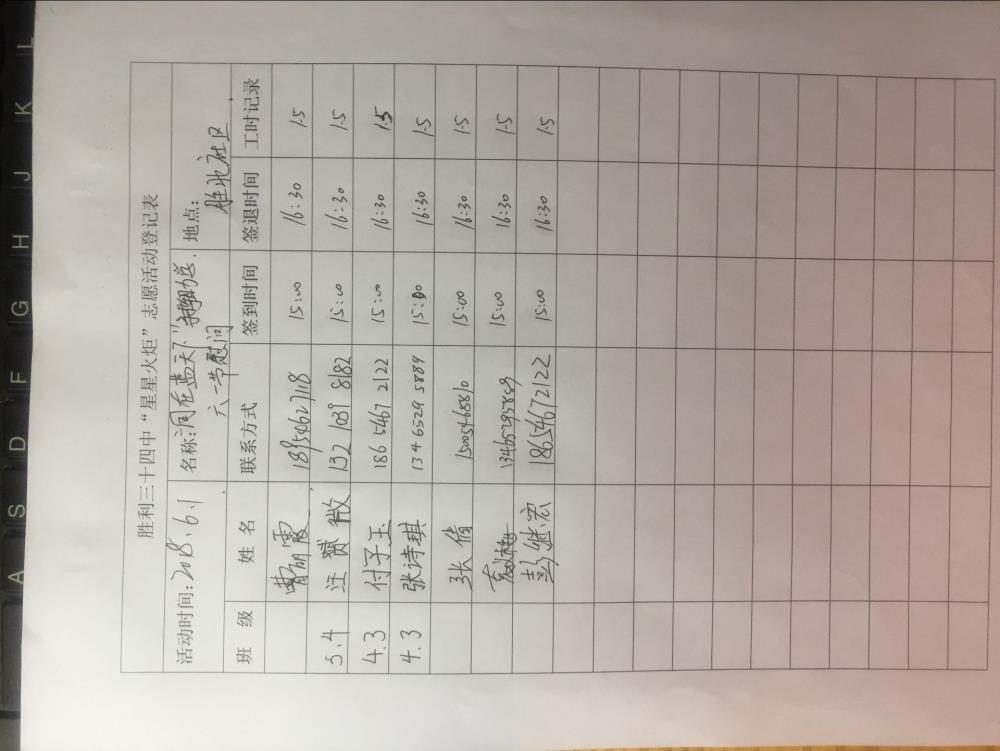 胜利三十四中“星星火炬”志愿活动登记表
活动时间：2018.6.1 名称：同在蓝天下 地点：
六一节慰问 胜北社区
班 级 姓 名 联系方式 签到时间 签退时间 工时记录
曹丽霞 15:00 16:30 1.5
5.4 汪赟微 132 1039 8182 15:00 16:30 1.5
4.3 付子玉 186 5467 2122 15:00 16:30 1.5
4.3 张诗琪 134 6529 5889 15:00 16:30 1.5
张倩 15005468810 15:00 16:30 1.5
15:00 16:30 1.5
彭继宏 18654672122 15:00 16:30 1.5
A S D F G H J K L